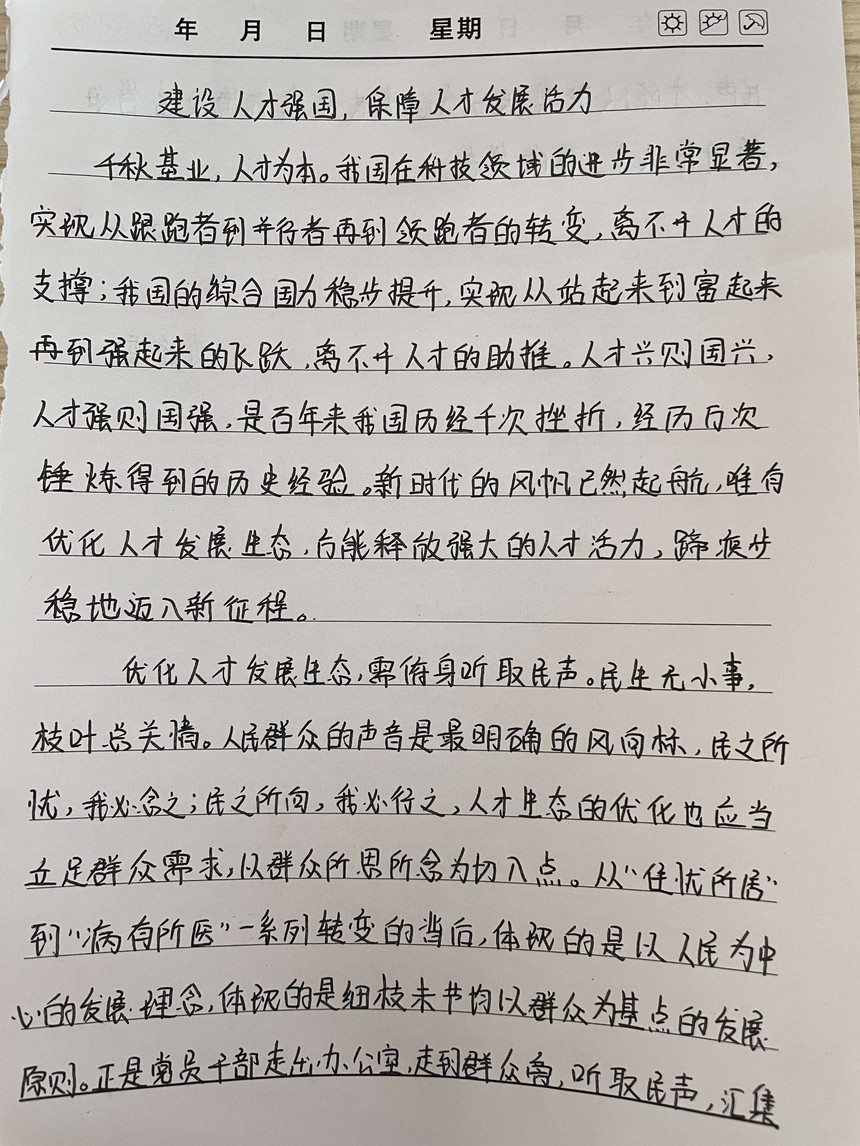 年 月 日 星期
建设人才强国，保障人才发展活力
千秋基业，人才为本。我国在科技领域的进步非常显著，
实现从跟跑者到并行者再到领跑者的转变，离不开人才的
支撑；我国的综合国力稳步提升，实现从站起来到富起来
再到强起来的飞跃，离不开人才的助推。人才兴则国兴，
人才强则国强，是百年来我国历经千次挫折，经历万次
锤炼得到的历史经验。新时代的风帆已然起航，唯有
优化人才发展生态，方能释放强大的人才活力，蹄疾步
稳地迈入新征程。
优化人才发展生态，需俯身听取民声。民生无小事，
枝叶总关情。人民群众的声音是最明确的风向标，民之所
忧，我必念之；民之所向，我必行之，人才生态的优化也应当
立足群众需求，以群众所思所念为切入点。从“住忧所居”
到“病有所医”一系列转变的当后，体现的是以人民为中
心的发展理念，体现的是细枝末节均以群众为基点的发展
原则。正是党员干部走出办公室，走到群众旁，听取民声，汇集